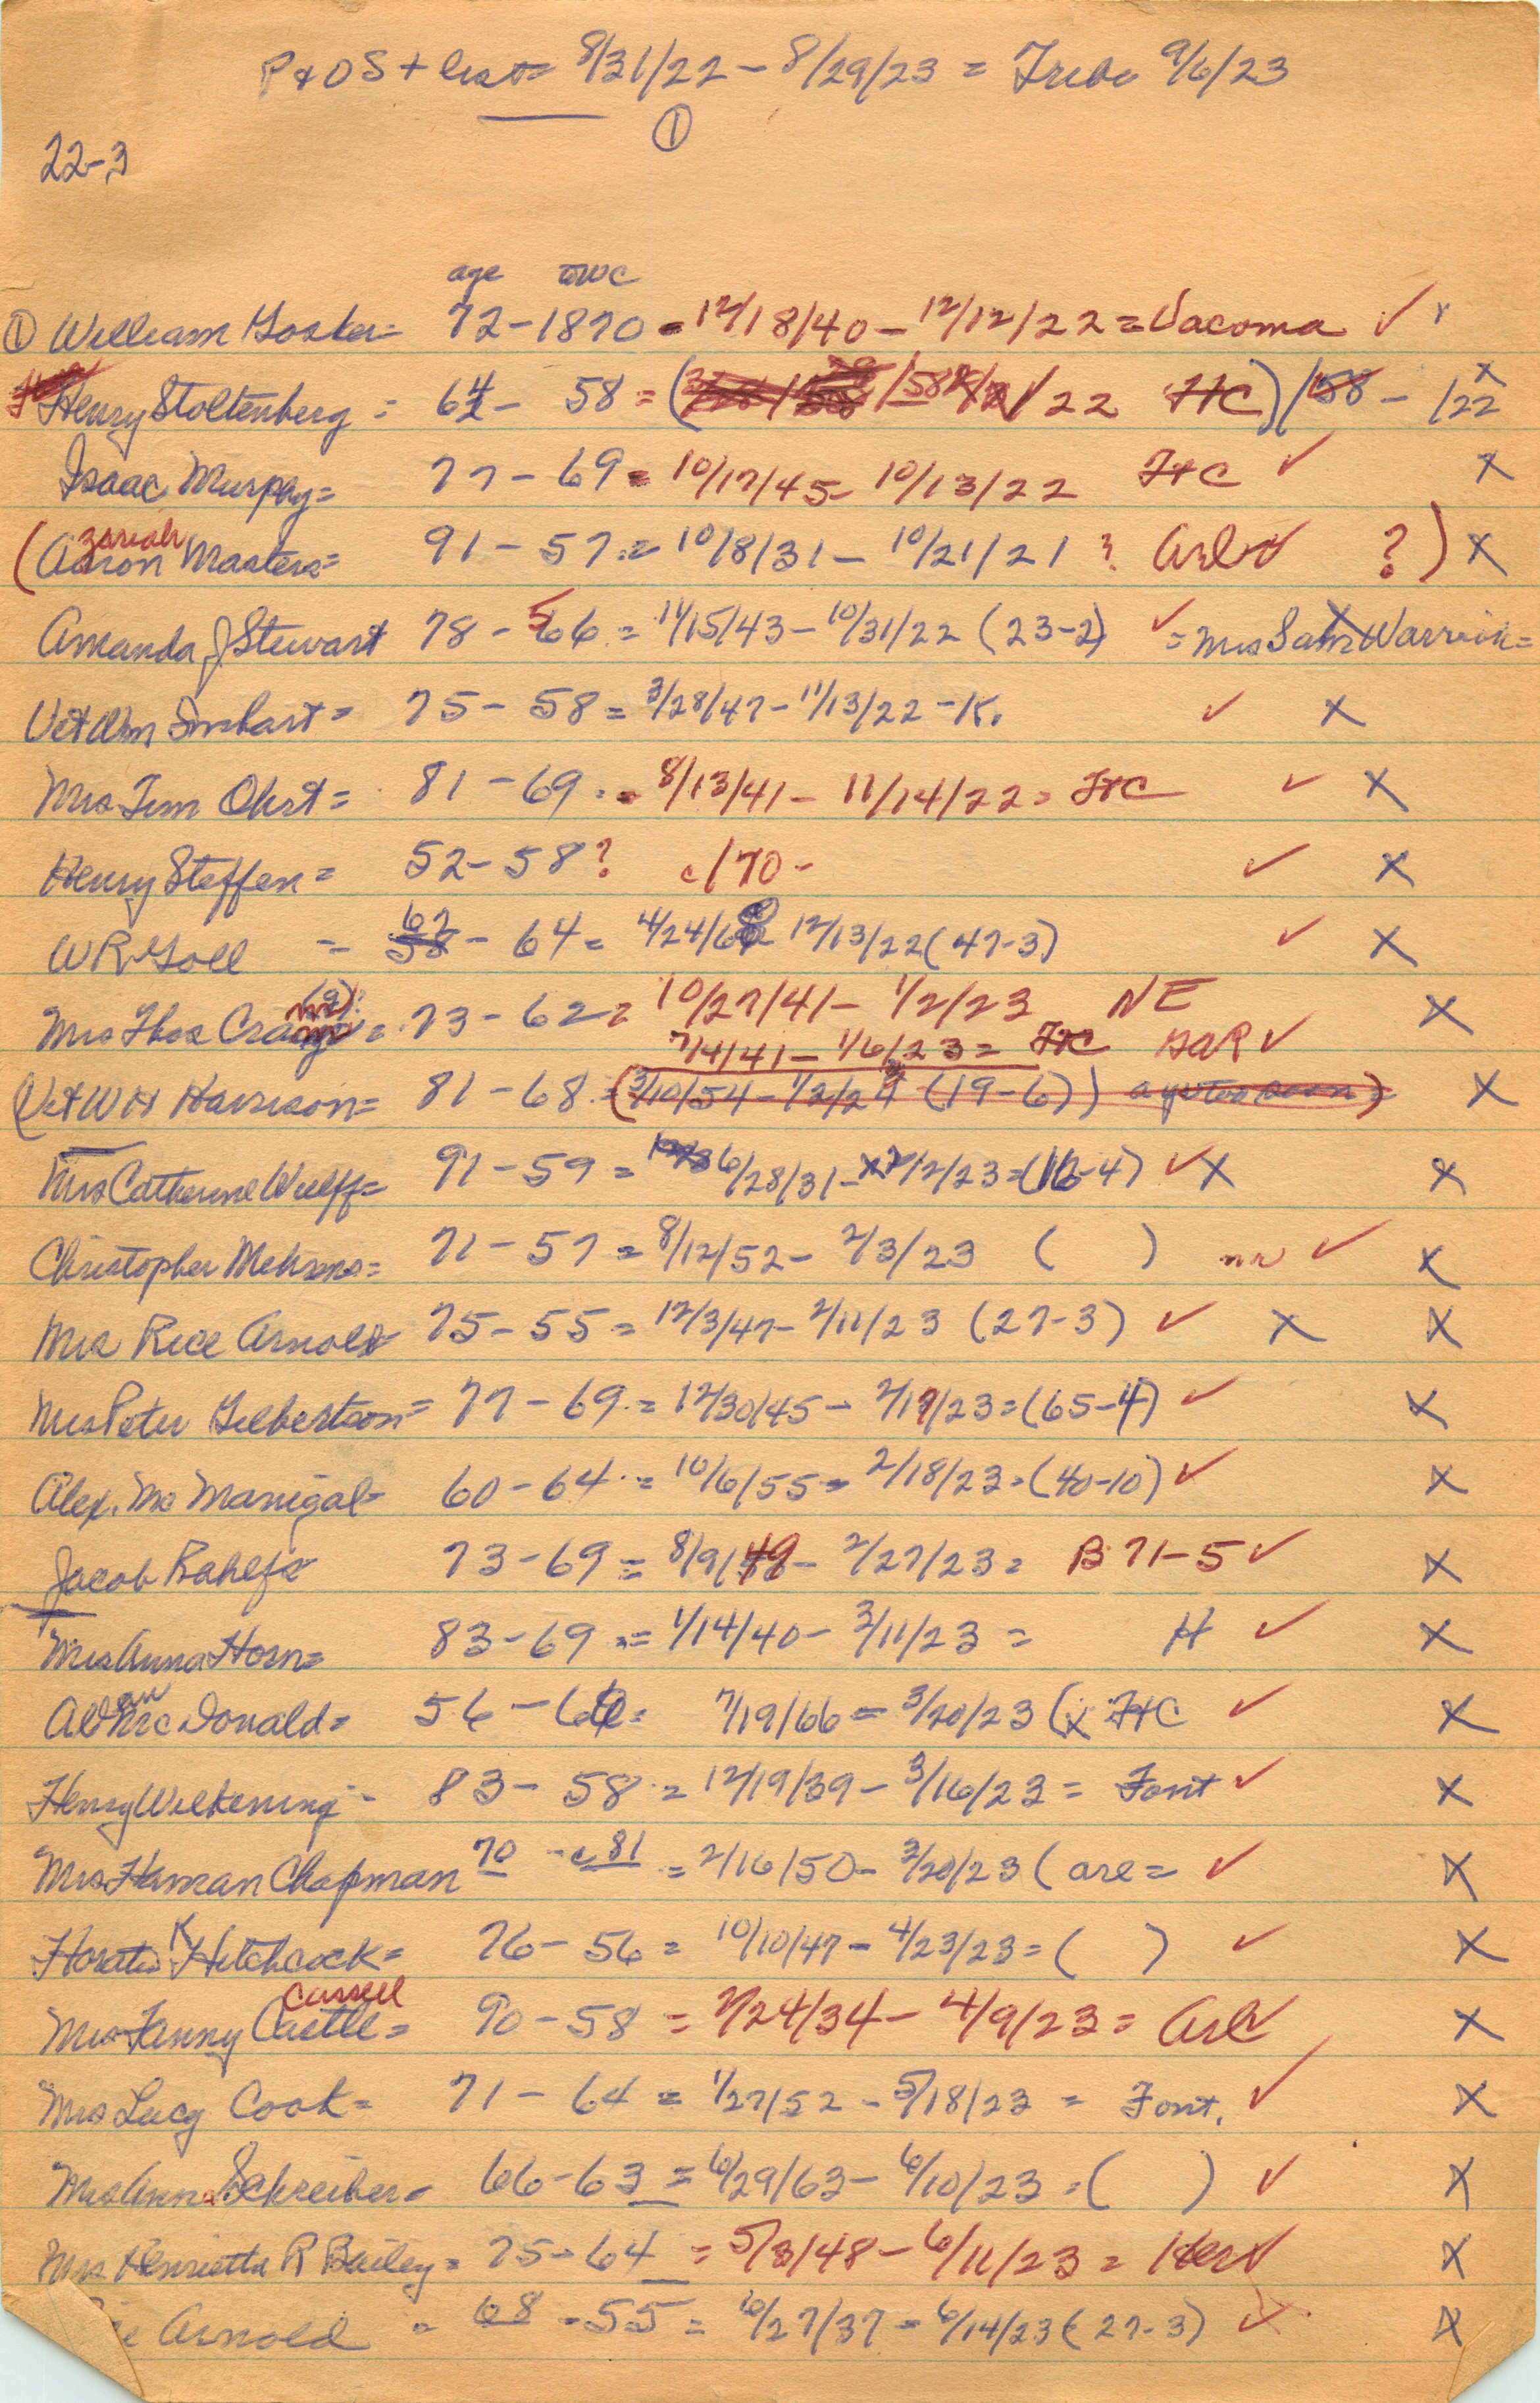 P & OS + list = 8/31/22 - 8/29/23 = Trib. 9/6/23
①
22-3
age owc
① William Gosker = 72 - 1870 = 12/18/40 - 12/12/22 = Vacoma ✓
Henry Stoltenberg = 64 - 58 = ( /22 FtC) /58 - /22 x
Isaac Murphy = 77 - 69 = 10/17/45 - 10/13/22 FtC ✓ x
(Azariah Masters = 91 - 57 = 10/8/31 - 10/21/21 ? Arl ✓ ?) x
Amanda J Stewart 78 - 56 = 11/15/43 - 10/31/22 (23-2) ✓ = Mrs Sam Warrick =
Vet Wm Imhart = 75 - 58 = 3/28/47 - 11/13/22 - K. ✓ x
Mrs Tim Ohrt = 81 - 69 = 8/13/41 - 11/14/22 = FtC ✓ x
Henry Steffen = 52 - 58? c/70 - ✓ x
WR Goll = 62 - 64 = 4/24/60 12/13/22 (47-3) ✓ x
Mrs Thos Craig = 73 - 62 = 10/27/41 - 1/2/23 NE x
7/4/41 - 1/6/23 = FtC DAR ✓
(Vet WH Harrison = 81 - 68 = (3/10/54 - 1/2/24 (19-6)) x
Mrs Catherine Wulff = 91 - 59 = 6/28/31 - 2/2/23 = (16-4) ✓ x x
Christopher Mehrens = 71 - 57 = 8/12/52 - 2/3/23 ( ) nr ✓ x
Mrs Rice Arnold = 75 - 55 = 12/3/47 - 2/11/23 (27-3) ✓ x x
Mrs Peter Gilbertson = 77 - 69 = 12/30/45 - 2/19/23 = (65-4) ✓ x
Alex. McManigal = 60 - 64 = 10/6/55 = 2/18/23 = (40-10) ✓ x
Jacob Rahlfs 73 - 69 = 8/9/49 - 2/27/23 = B 71-5 ✓ x
Mrs Anna Horn = 83 - 69 = 1/14/40 - 3/11/23 = H ✓ x
McDonald = 56 - 66 = 7/19/66 = 3/20/23 (x FtC ✓ x
Henry Wilkening = 83 - 58 = 12/19/39 - 3/16/23 = Font ✓ x
Mrs Haman Chapman 70 - c 81 = 2/16/50 - 3/20/23 (are = ✓ x
Horatio K Hitchcock = 76 - 56 = 10/10/47 - 4/23/23 = ( ) ✓ x
Cassell
Mrs Fanny Castle = 90 - 58 = 2/24/34 - 4/9/23 = Arl ✓ x
Mrs Lucy Cook = 71 - 64 = 1/27/52 - 5/18/23 = Font. ✓ x
Mrs Anna Schreiber = 66 - 63 = 6/29/63 - 6/10/23 = ( ) ✓ x
Mrs Henrietta R Bailey = 75 - 64 = 5/3/48 - 6/11/23 = Her ✓ x
Arnold = 68 - 55 = 6/27/37 - 6/14/23 (27-3) ✓ x